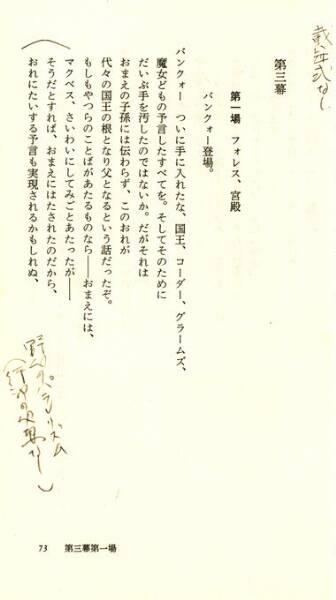 戴冠式なし
第三幕
第一場 フォレス、宮殿
バンクォー登場。
バンクォー ついに手に入れたな、国王、コーダー、グラームズ、
魔女どもの予言したすべてを。そしてそのために
だいぶ手を汚したのではないか。だがそれは
おまえの子孫には伝わらず、このおれが
代々の国王の根となり父となるという話だったぞ。
もしもやつらのことばがあたるものなら——おまえには、
マクベス、さいわいにしてみごとあたったが——
そうだとすれば、おまえにはたされたのだから、
おれにたいする予言も実現されるかもしれぬ、
野心のパラレリズム
73 第三幕第一場